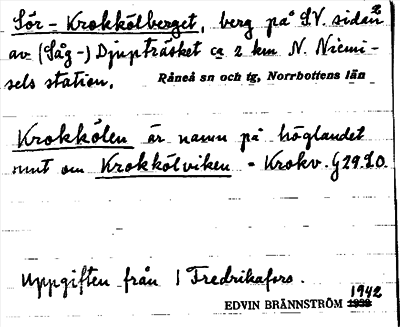 Sör-Krokkölberget, berg på SV. sidan
av (Såg-) Djupträsket ca 2 km N. Niemi-
sels station. Råneå sn och tg, Norrbottens län
Krokkölen är namn på höglandet
runt om Krokkölviken = Krokv. G29:10.
Uppgiften från I Fredrikafors.
EDVIN BRÄNNSTRÖM 1942